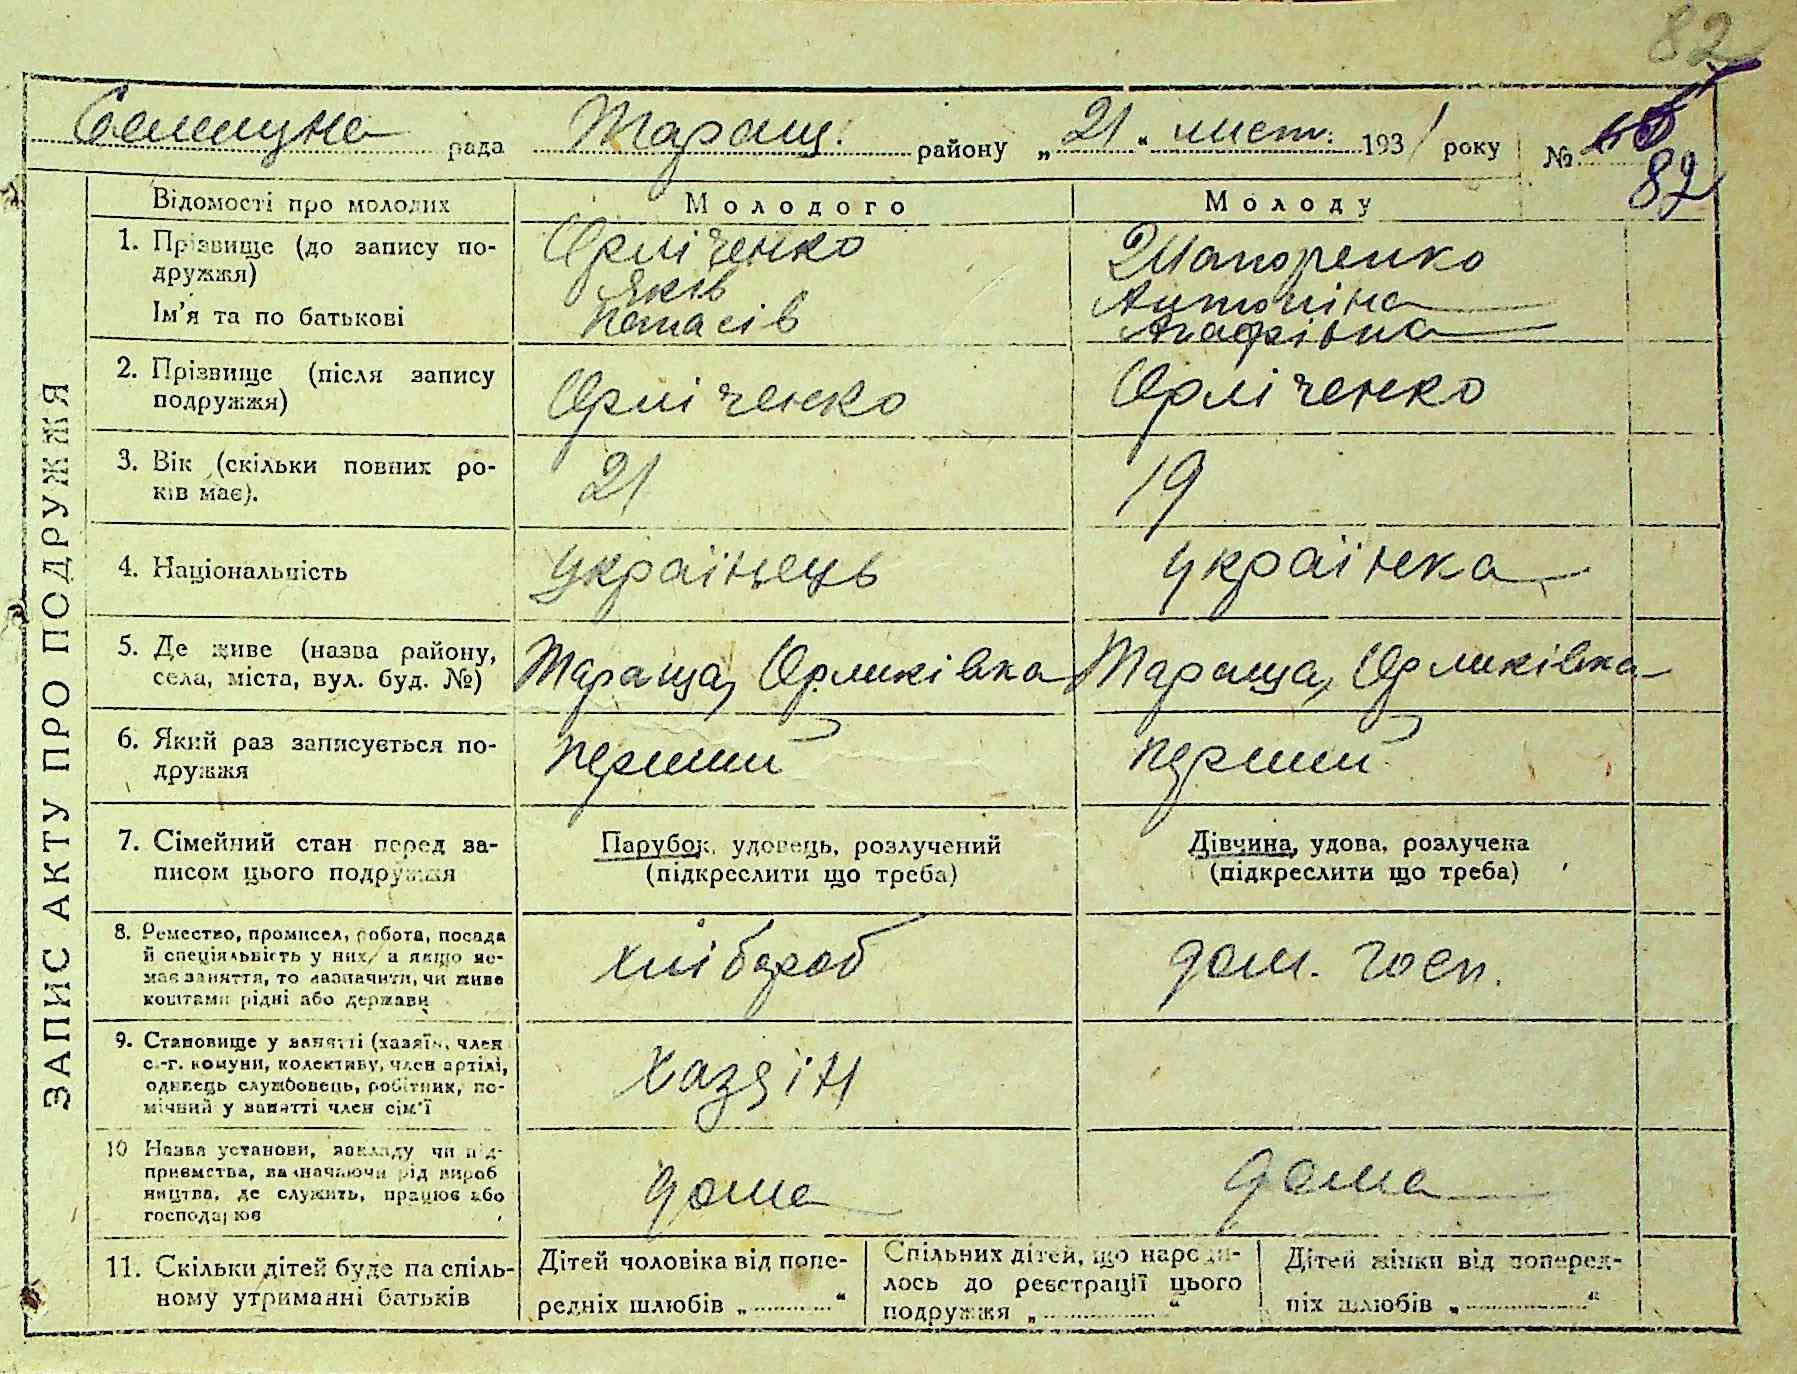 82
Селищна рада Таращ. району „21" лист. 1931 року № 60
82
ЗАПИС АКТУ ПРО ПОДРУЖЖЯ
Відомості про молодих Молодого Молоду
1. Прізвище (до запису по-
дружжя)
Ім'я та по батькові
Орліченко
Яків
Потасів
Шапоренко
Антоніна
Агафівна
2. Прізвище (після запису
подружжя)
Орліченко Орліченко
3. Вік (скільки повних ро-
ків має).
21 19
4. Національність українець українка
5. Де живе (назва району,
села, міста, вул. буд. №)
Тараща, Орликівка Тараща, Орликівка
6. Який раз записується по-
дружжя
перший перший
7. Сімейний стан перед за-
писом цього подружжя
Парубок, удовець, розлучений
(підкреслити що треба)
Дівчина, удова, розлучена
(підкреслити що треба)
8. Ремество, промисел, робота, посада
й спеціяльність у них, а якщо не-
має заняття, то зазначити, чи живе
коштами рідні або держави
хлібороб дом. госп.
9. Становище у занятті (хазяїн, член
с.-г. комуни, колективу, член артілі,
одинець службовець, робітник, по-
мічний у занятті член сім'ї
хазяін
10 Назва установи, закладу чи під-
приємства, зазначаючи рід вироб
ництва, де служить, працює або
господарює
дома дома
11. Скільки дітей буде на спіль-
ному утриманні батьків
Дітей чоловіка від попе-
редніх шлюбів „..........."
Спільних дітей, що народи-
лось до реєстрації цього
подружжя „..........."
Дітей жінки від поперед-
ніх шлюбів „..........."